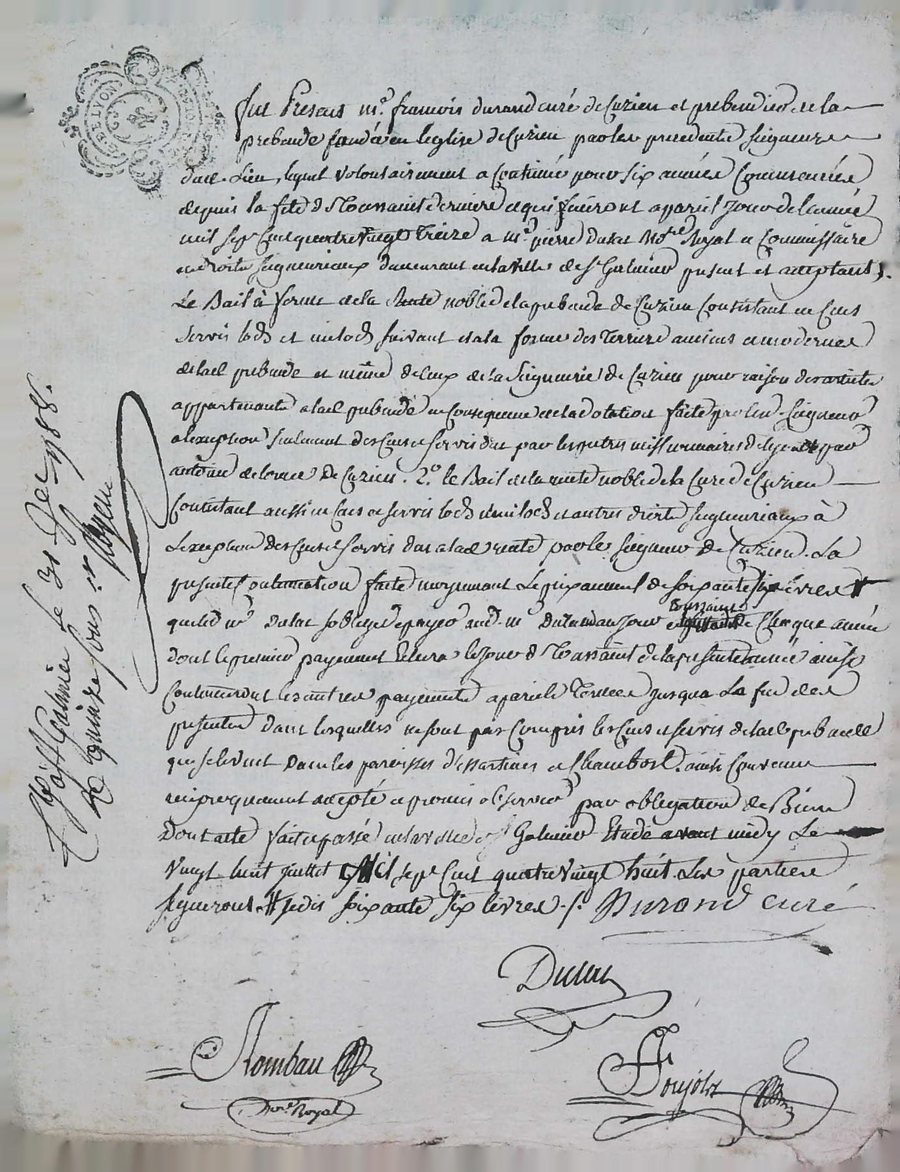 Fut Present Mr. francois durand curé de Cuzieu et prebendier de la
prebende fondée en leglise de Cuzieu par les precedents Seigneurs
dud. Lieu, lequel volontairement a continué pour six années Commencées
depuis la fete de Toussaint derniere et qui finiront a pareil jour de lannée
mil sept Cent quatre vingt treize a me. pierre Dulac No.re Royal et Commissaire
en droits Seigneuriaux demeurant en la ville de St. Galmier present et acceptant,
Le Bail à ferme de la Rente noble de la prebende de Cuzieu Consistant en Cens
Servis lods et milods suivant et a la forme des Terriers anciens et modernes
de lad. prebende et même de Ceux de la Seigneurie de Cuzieu pour raison des articles
appartenants a lad. prebende en Consequence de la dotation faite par led. Seigneur
a lexception seulement des Cens et Servis dus par les pretres missionnaires de
de Cuzieu. 2o. le Bail de la rente noble de la Cure de Cuzieu
Consistant aussi en Cens et Servis lods et milods et autres droits Seigneuriaux à
Lexception des Cens et Servis dus a lad. rente par le Seigneur de Cuzieu. La
presente faite moyennant Le prix annuel de soixante six livres
que led. mr. dulac soblige de payer aud. mr. durand au jour toussaint de Chaque année
dont le premier payement le jour de Toussaint de la presente année ainsi
Continueront les autres payements a pareils Termes jusqua La fin des
presentes dans lesquelles ne sont pas Compris les Cens et servis de lad. prebende
qui se levent dans les paroisses dessartines et Chambost. ainsi Convenu
reciproquement accepté et promis observer par obligation de Biens
Dont acte fait et passé en la ville de St. Galmier Etude avant midy Le
vingt huit juillet Mil sept Cent quatre vingt huit. Les parties
signeront. # je dis soixante six livres. /. Durand curé
Dulac
Rombau
No.re Royal
Poujolz
St Galmier le 31 1788.
quinze sous